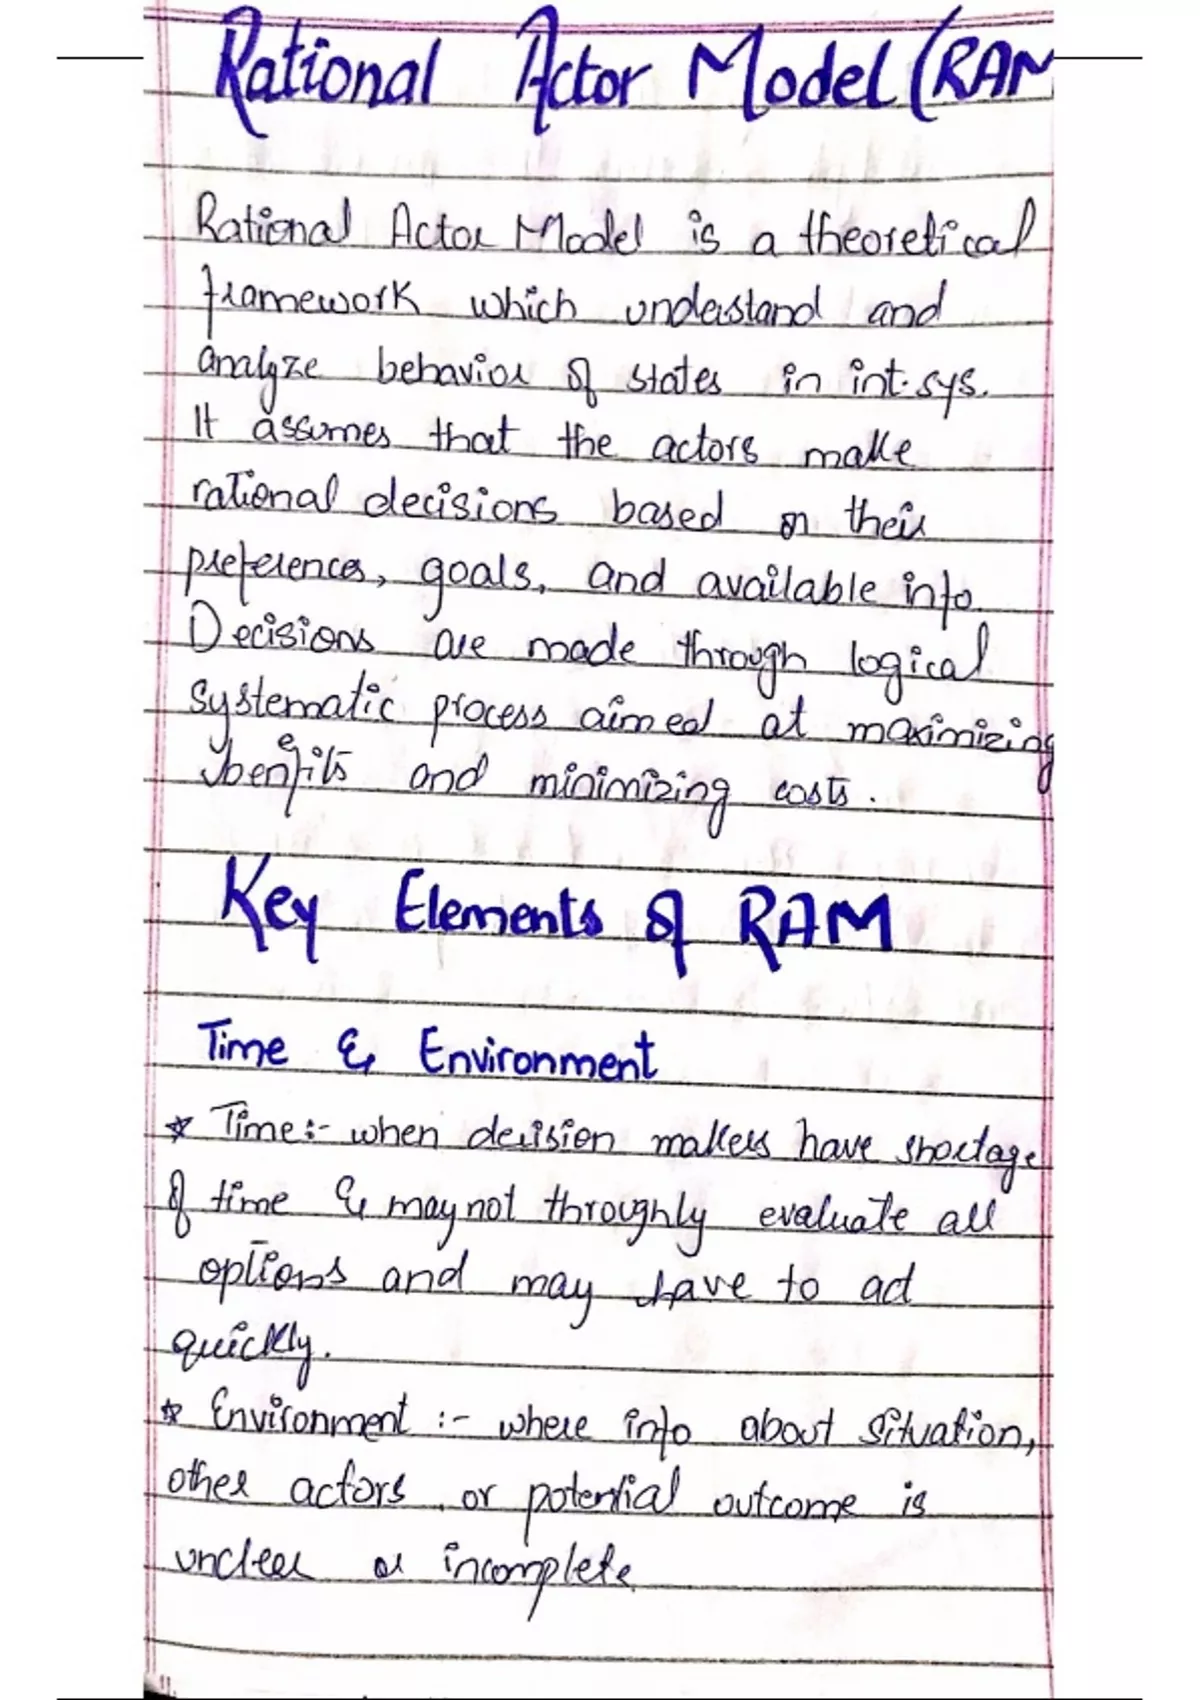 Rational Actor Model (RAM
Rational Actor Model is a theoretical
framework which understand and
analyze behavior of states in int. sys.
It assumes that the actors make
rational decisions based on their
preferences, goals, and available info.
Decisions are made through logical
systematic process aimed at maximizing
benefits and minimizing costs.
Key Elements of RAM
Time & Environment
* Time:- when decision makers have shortage
of time & may not throughly evaluate all
options and may have to act
quickly.
* Environment :- where info about situation,
other actors, or potential outcome is
unclear or incomplete